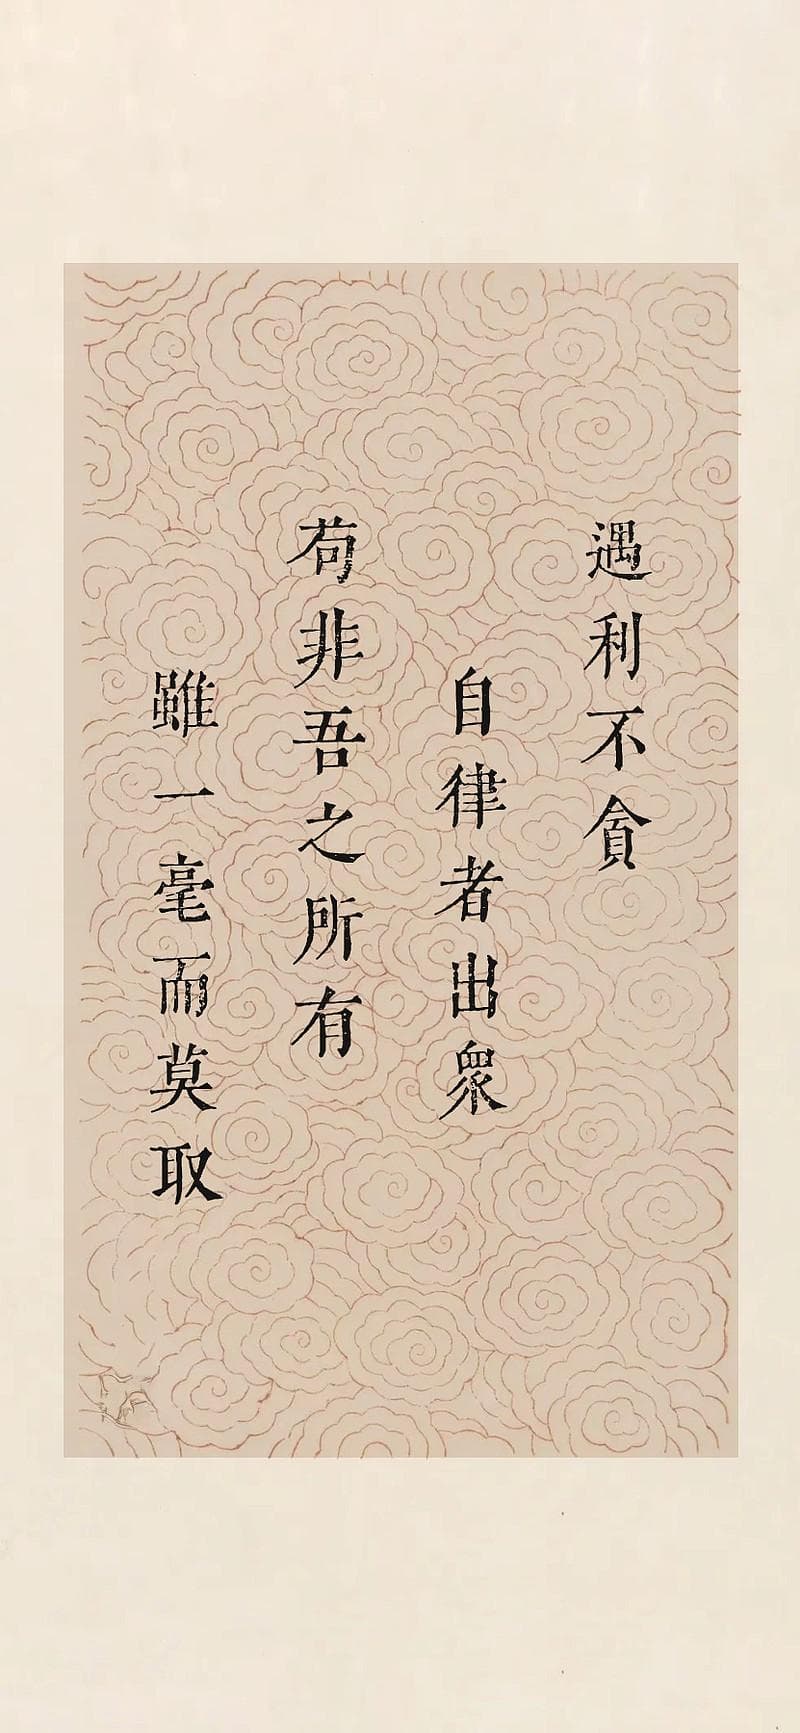 遇利不貪
自律者出衆
苟非吾之所有
雖一毫而莫取